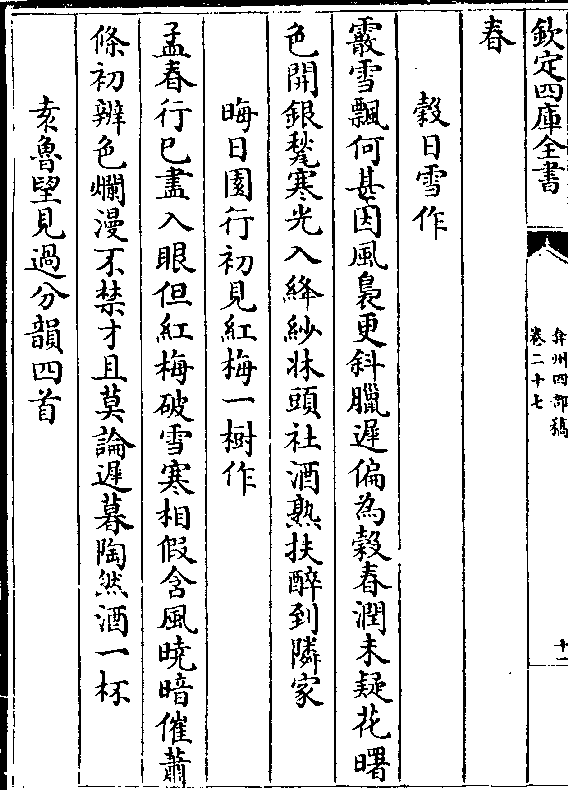 欽定四庫全書
弇州四部稿
卷二十七
十一
春
穀日雪作
霰雪飄何甚因風裊更斜臘遲偏為穀春潤未疑花曙
色開銀甃寒光入絳紗牀頭社酒熟扶醉到隣家
晦日園行初見紅梅一樹作
孟春行已盡入眼但紅梅破雪寒相假含風曉暗催蕭
條初辨色爛漫不禁才且莫論遲暮陶然酒一杯
袁魯望見過分韻四首